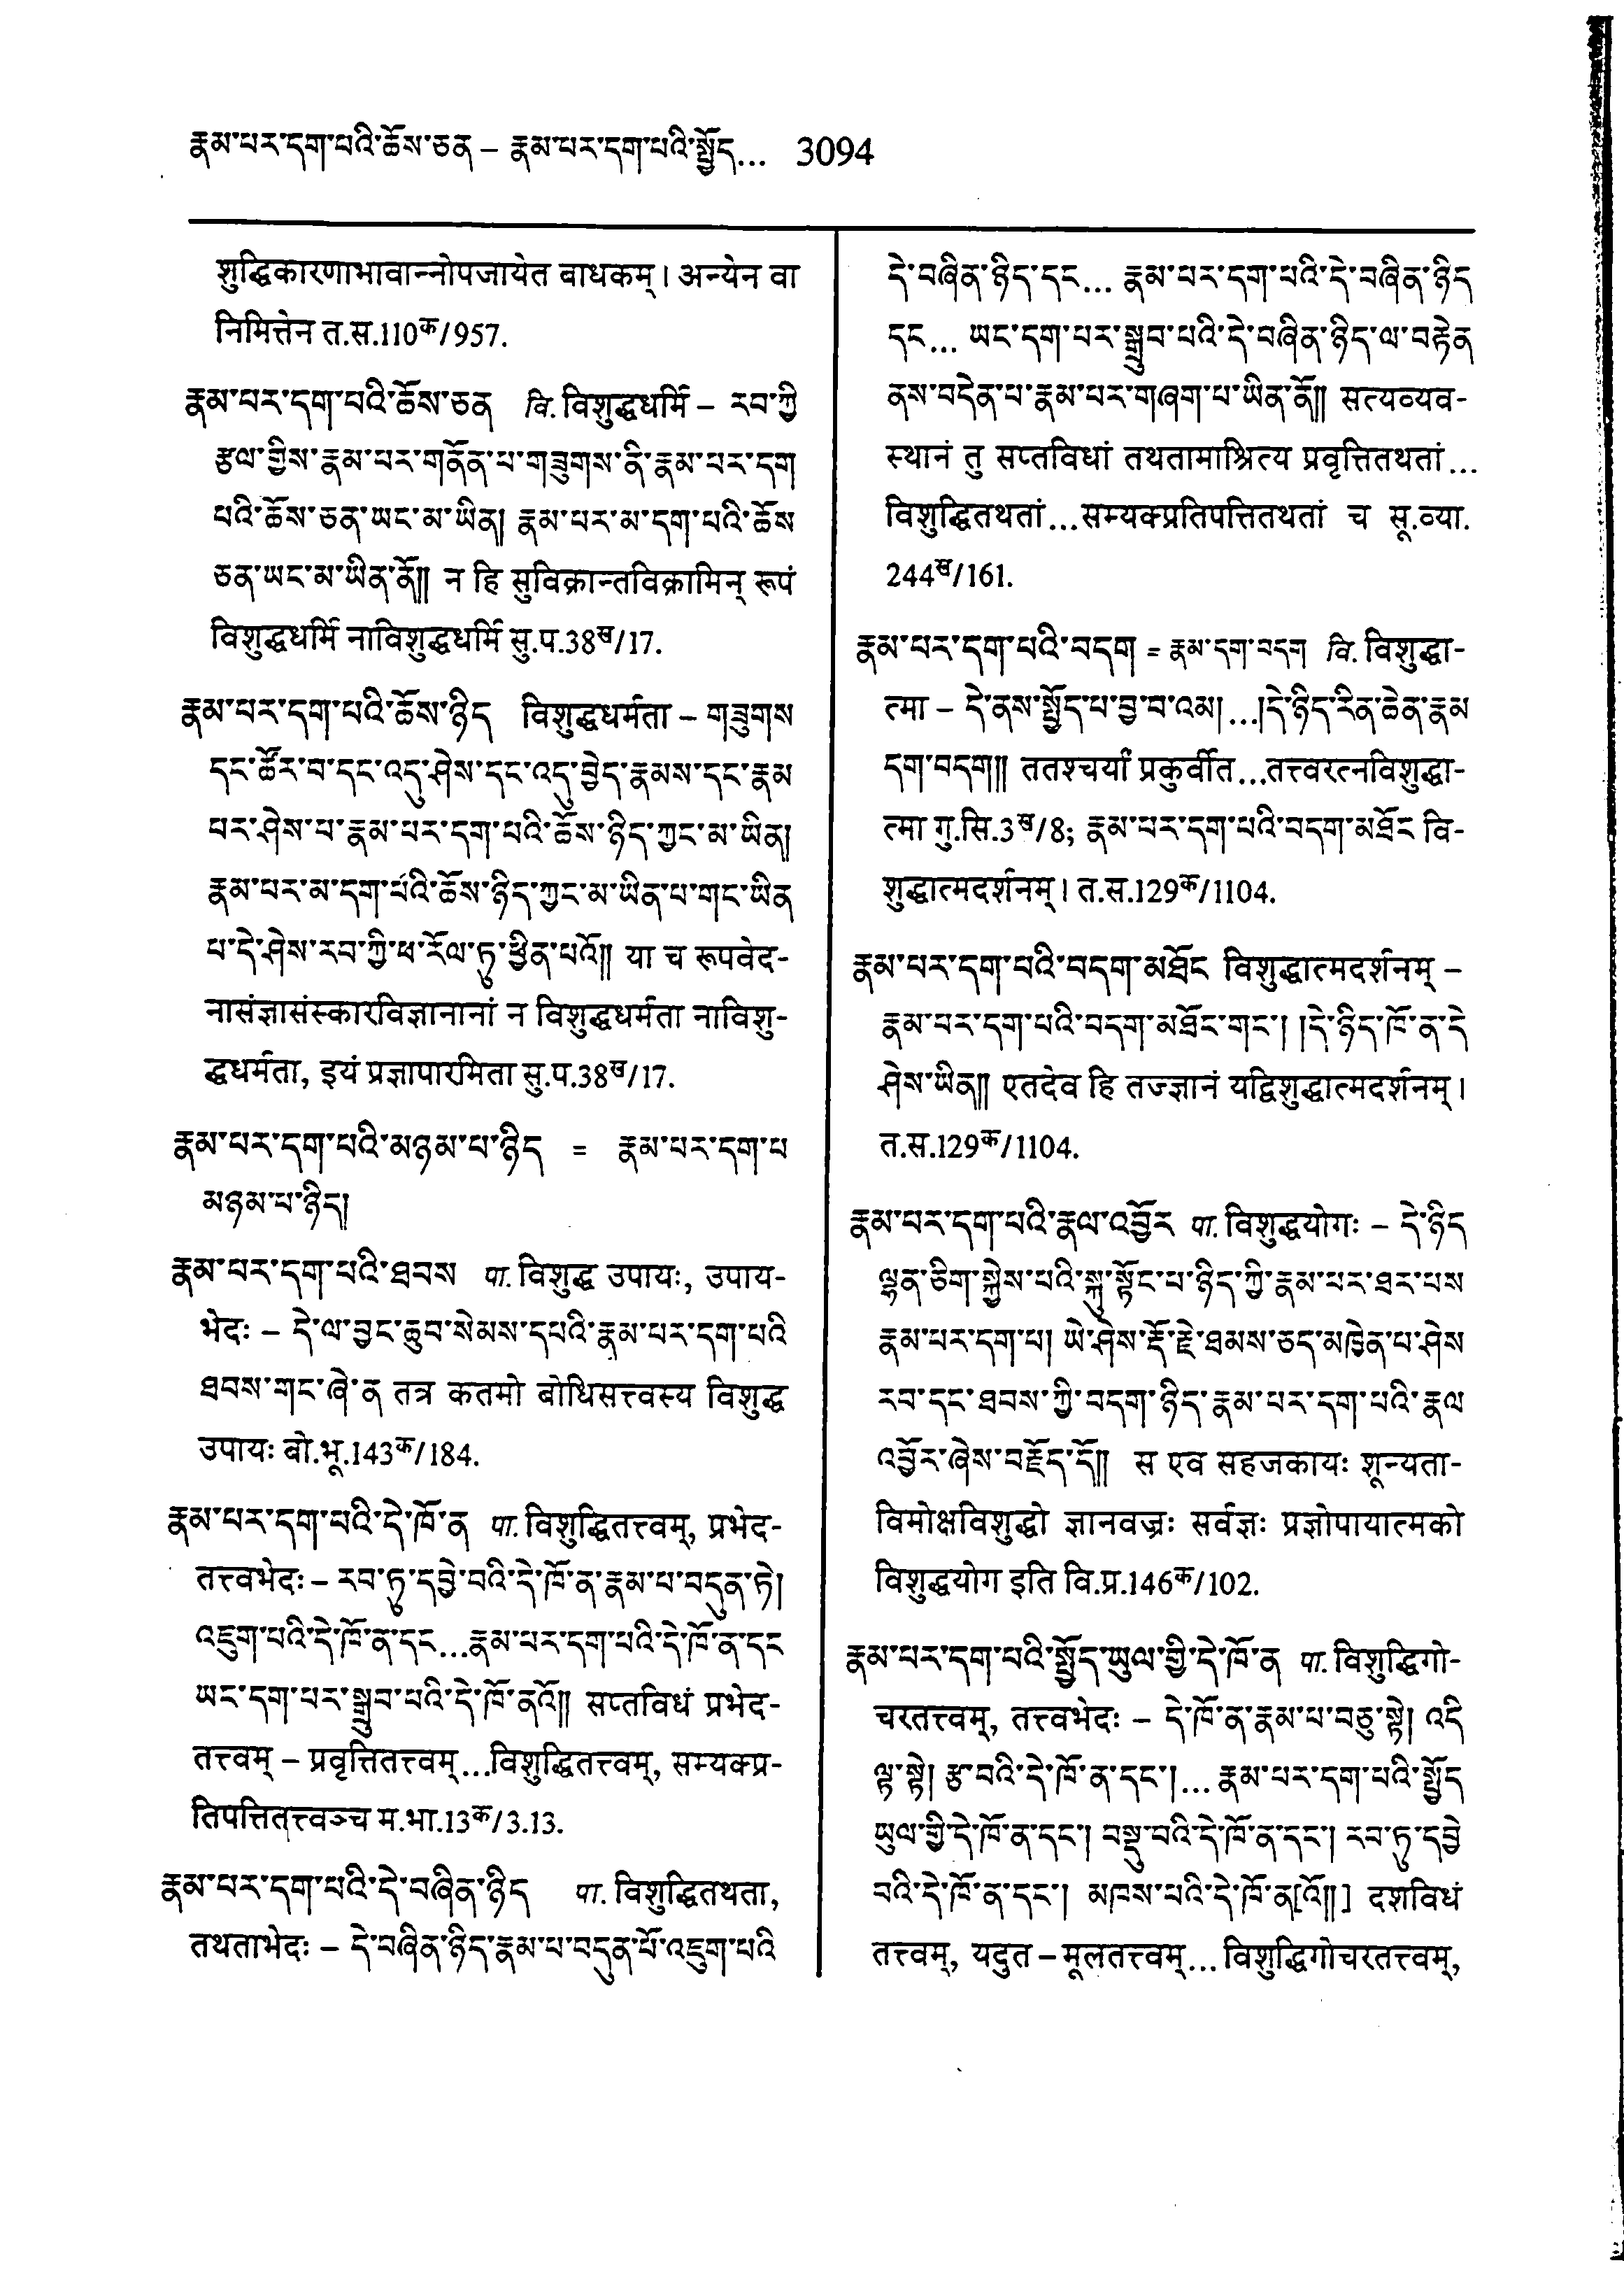 རྣམ་པར་དག་པའི་ཆོས་ཅན – རྣམ་པར་དག་པའི་སྤྱོད... 3094
शुद्धिकारणाभावान्नोपजायेत बाधकम्। अन्येन वा
निमित्तेन त.स.110क/957.
རྣམ་པར་དག་པའི་ཆོས་ཅན वि. विशुद्धधर्मि – རབ་ཀྱི
རྩལ་གྱིས་རྣམ་པར་གནོན་པ་གཟུགས་ནི་རྣམ་པར་དག
པའི་ཆོས་ཅན་ཡང་མ་ཡིན། རྣམ་པར་མ་དག་པའི་ཆོས
ཅན་ཡང་མ་ཡིན་ནོ།། न हि सुविक्रान्तविक्रामिन् रूपं
विशुद्धधर्मि नाविशुद्धधर्मि सु.प.38ख/17.
རྣམ་པར་དག་པའི་ཆོས་ཉིད विशुद्धधर्मता – གཟུགས
དང་ཚོར་བ་དང་འདུ་ཤེས་དང་འདུ་བྱེད་རྣམས་དང་རྣམ
པར་ཤེས་པ་རྣམ་པར་དག་པའི་ཆོས་ཉིད་ཀྱང་མ་ཡིན།
རྣམ་པར་མ་དག་པའི་ཆོས་ཉིད་ཀྱང་མ་ཡིན་པ་གང་ཡིན
པ་དེ་ཤེས་རབ་ཀྱི་ཕ་རོལ་ཏུ་ཕྱིན་པའོ།། या च रूपवेद-
नासंज्ञासंस्कारविज्ञानानां न विशुद्धधर्मता नाविशु-
द्धधर्मता, इयं प्रज्ञापारमिता सु.प.38ख/17.
རྣམ་པར་དག་པའི་མཉམ་པ་ཉིད = རྣམ་པར་དག་པ
མཉམ་པ་ཉིད།
རྣམ་པར་དག་པའི་ཐབས पा. विशुद्ध उपायः, उपाय-
भेदः – དེ་ལ་བྱང་ཆུབ་སེམས་དཔའི་རྣམ་པར་དག་པའི
ཐབས་གང་ཞེ་ན तत्र कतमो बोधिसत्त्वस्य विशुद्ध
उपायः बो.भू.143क/184.
རྣམ་པར་དག་པའི་དེ་ཁོ་ན पा. विशुद्धितत्त्वम्, प्रभेद-
तत्त्वभेदः – རབ་ཏུ་དབྱེ་བའི་དེ་ཁོ་ན་རྣམ་པ་བདུན་ཏེ།
འཇུག་པའི་དེ་ཁོ་ན་དང...རྣམ་པར་དག་པའི་དེ་ཁོ་ན་དང
ཡང་དག་པར་སྒྲུབ་པའི་དེ་ཁོ་ནའོ།། सप्तविधं प्रभेद-
तत्त्वम् – प्रवृत्तितत्त्वम्...विशुद्धितत्त्वम्, सम्यक्प्र-
तिपत्तितत्त्वञ्च म.भा.13क/3.13.
རྣམ་པར་དག་པའི་དེ་བཞིན་ཉིད पा. विशुद्धितथता,
तथताभेदः – དེ་བཞིན་ཉིད་རྣམ་པ་བདུན་པོ་འཇུག་པའི
དེ་བཞིན་ཉིད་དང... རྣམ་པར་དག་པའི་དེ་བཞིན་ཉིད
དང... ཡང་དག་པར་སྒྲུབ་པའི་དེ་བཞིན་ཉིད་ལ་བརྟེན
ནས་བདེན་པ་རྣམ་པར་གཞག་པ་ཡིན་ནོ།། सत्यव्यव-
स्थानं तु सप्तविधां तथतामाश्रित्य प्रवृत्तितथतां...
विशुद्धितथतां...सम्यक्प्रतिपत्तितथतां च सू.व्या.
244ख/161.
རྣམ་པར་དག་པའི་བདག = རྣམ་དག་བདག वि. विशुद्धा-
त्मा – དེ་ནས་སྤྱོད་པ་བྱ་བ་འམ།...།དེ་ཉིད་རིན་ཆེན་རྣམ
དག་བདག།། ततश्चर्यां प्रकुर्वीत...तत्त्वरत्नविशुद्धा-
त्मा गु.सि.3ख/8; རྣམ་པར་དག་པའི་བདག་མཐོང वि-
शुद्धात्मदर्शनम्। त.स.129क/1104.
རྣམ་པར་དག་པའི་བདག་མཐོང विशुद्धात्मदर्शनम् –
རྣམ་པར་དག་པའི་བདག་མཐོང་གང་། །དེ་ཉིད་ཁོ་ན་དེ
ཤེས་ཡིན།། एतदेव हि तज्ज्ञानं यद्विशुद्धात्मदर्शनम्।
त.स.129क/1104.
རྣམ་པར་དག་པའི་རྣལ་འབྱོར पा. विशुद्धयोगः – དེ་ཉིད
ལྷན་ཅིག་སྐྱེས་པའི་སྐུ་སྟོང་པ་ཉིད་ཀྱི་རྣམ་པར་ཐར་པས
རྣམ་པར་དག་པ། ཡེ་ཤེས་རྡོ་རྗེ་ཐམས་ཅད་མཁྱེན་པ་ཤེས
རབ་དང་ཐབས་ཀྱི་བདག་ཉིད་རྣམ་པར་དག་པའི་རྣལ
འབྱོར་ཞེས་བརྗོད་དོ།། स एव सहजकायः शून्यता-
विमोक्षविशुद्धो ज्ञानवज्रः सर्वज्ञः प्रज्ञोपायात्मको
विशुद्धयोग इति वि.प्र.146क/102.
རྣམ་པར་དག་པའི་སྤྱོད་ཡུལ་གྱི་དེ་ཁོ་ན पा. विशुद्धिगो-
चरतत्त्वम्, तत्त्वभेदः – དེ་ཁོ་ན་རྣམ་པ་བཅུ་སྟེ། འདི
ལྟ་སྟེ། རྩ་བའི་དེ་ཁོ་ན་དང་།... རྣམ་པར་དག་པའི་སྤྱོད
ཡུལ་གྱི་དེ་ཁོ་ན་དང་། བསྡུ་བའི་དེ་ཁོ་ན་དང་། རབ་ཏུ་དབྱེ
བའི་དེ་ཁོ་ན་དང་། མཁས་པའི་དེ་ཁོ་ན[འོ།།] दशविधं
तत्त्वम्, यदुत – मूलतत्त्वम्... विशुद्धिगोचरतत्त्वम्,